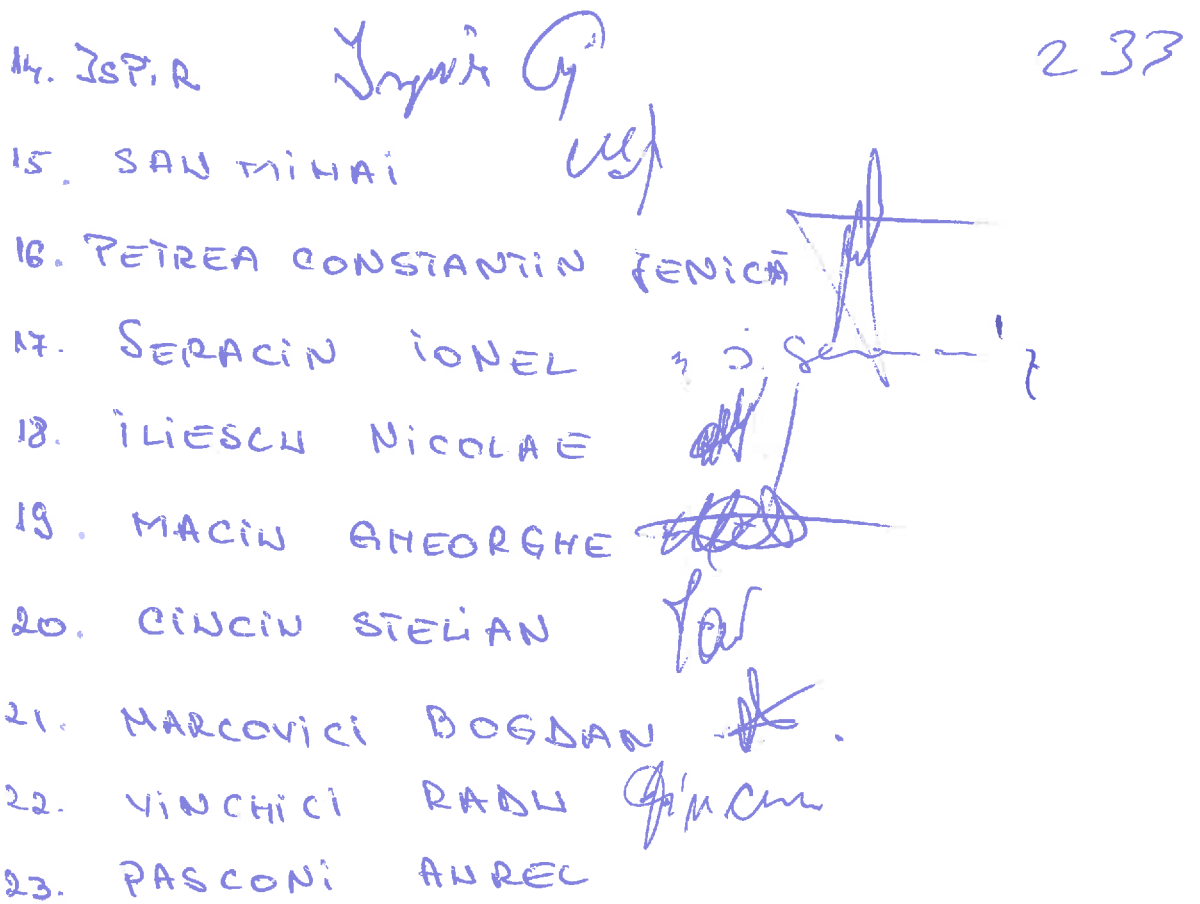 233
14. ISPIR
15. SAN MIHAI
16. PETREA CONSTANTIN JENICĂ
17. SERACIN IONEL
18. ILIESCU NICOLAE
19. MACIN GHEORGHE
20. CINCIN STELIAN
21. MARCOVICI BOGDAN
22. VINCHICI RADU
23. PASCONI AUREL